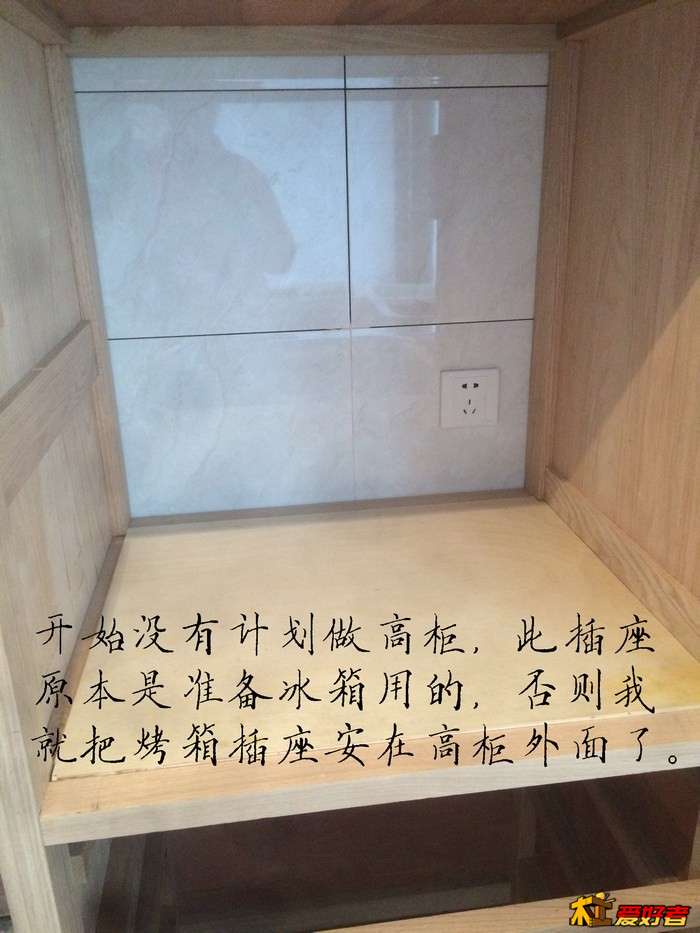 开始没有计划做高柜，此插座
原本是准备冰箱用的，否则我
就把烤箱插座安在高柜外面了。
爱好者